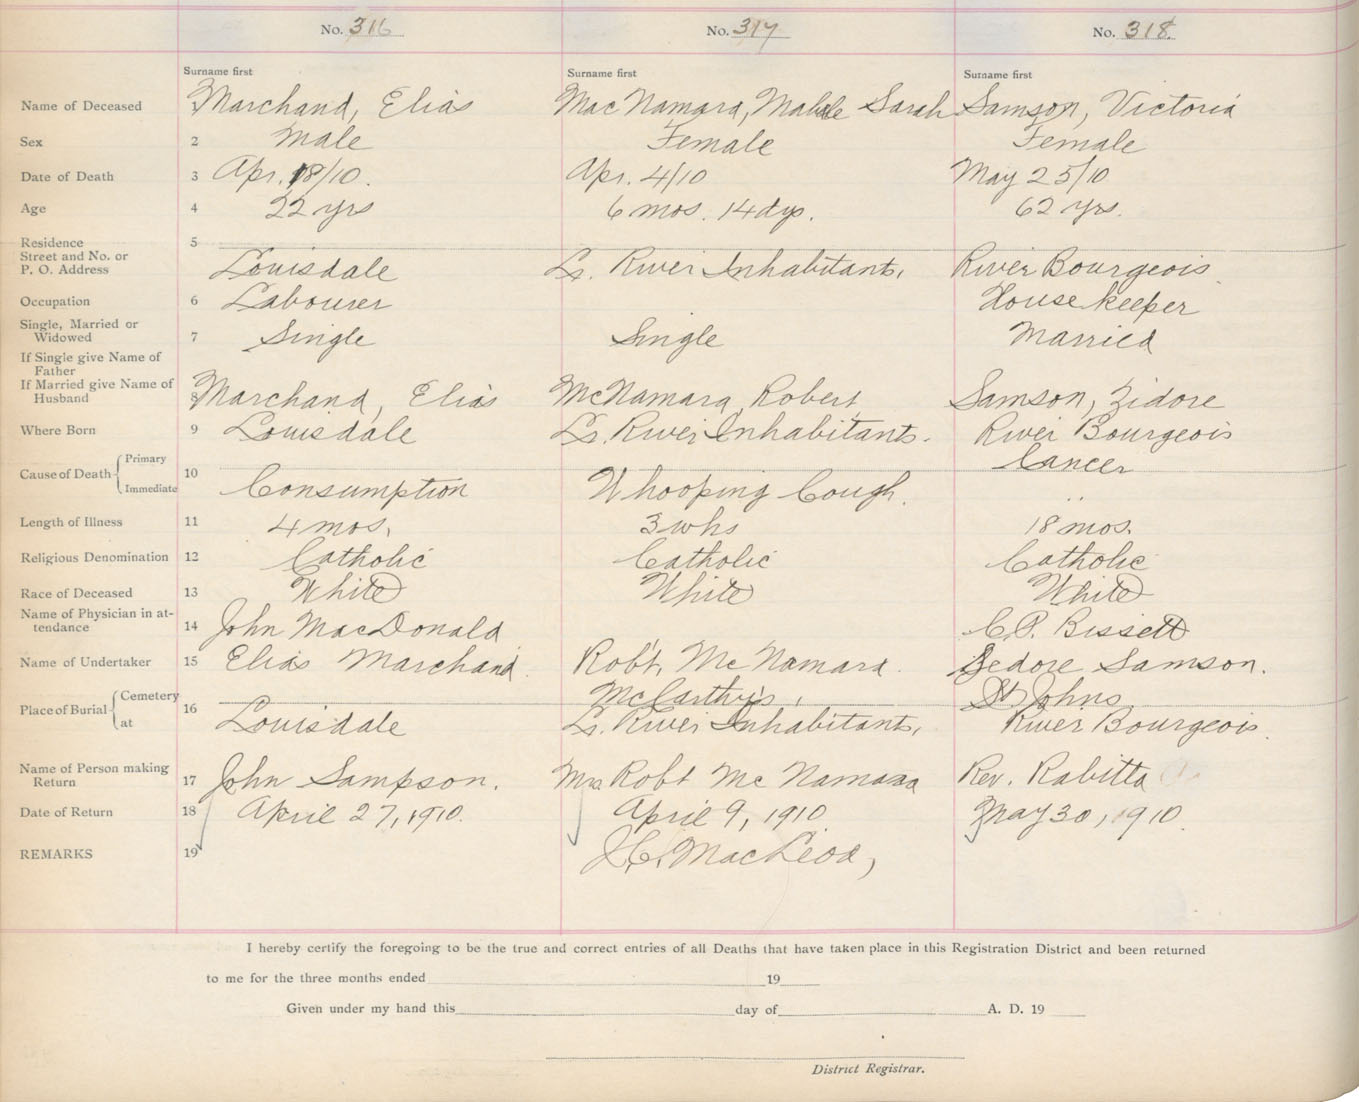 No. 316 No. 317 No. 318
Surname first Surname first Surname first
Name of Deceased 1 Marchand, Elias MacNamara, Mabel Sarah Samson, Victoria
Sex 2 Male Female Female
Date of Death 3 Apr. 18/10. Apr. 4/10 May 25/10
Age 4 22 yrs 6 mos. 14 dys. 62 yrs.
Residence 5
Street and No. or
P. O. Address Louisdale Lr. River Inhabitants, River Bourgeois
Occupation 6 Labourer House keeper
Single, Married or
Widowed 7 Single Single Married
If Single give Name of
Father
If Married give Name of
Husband 8 Marchand, Elias McNamara, Robert Samson, Zidore
Where Born 9 Louisdale Lr. River Inhabitants. River Bourgeois
Cause of Death Primary 10 Cancer
Immediate Consumption Whooping Cough. "
Length of Illness 11 4 mos. 3 wks 18 mos.
Religious Denomination 12 Catholic Catholic Catholic
Race of Deceased 13 White White White
Name of Physician in at-
tendance 14 John MacDonald C.P. Bissett
Name of Undertaker 15 Elias Marchand. Robt. McNamara. Zedore Samson.
Place of Burial Cemetery 16 McCarthy's, St Johns
at Louisdale Lr. River Inhabitants, River Bourgeois.
Name of Person making
Return 17 John Sampson. Mrs Robt McNamara Rev. Rabitta
Date of Return 18 April 27, 1910. April 9, 1910 May 30, 1910.
REMARKS 19 J.C. MacLeod,
I hereby certify the foregoing to be the true and correct entries of all Deaths that have taken place in this Registration District and been returned
to me for the three months ended 19
Given under my hand this day of A. D. 19
District Registrar.